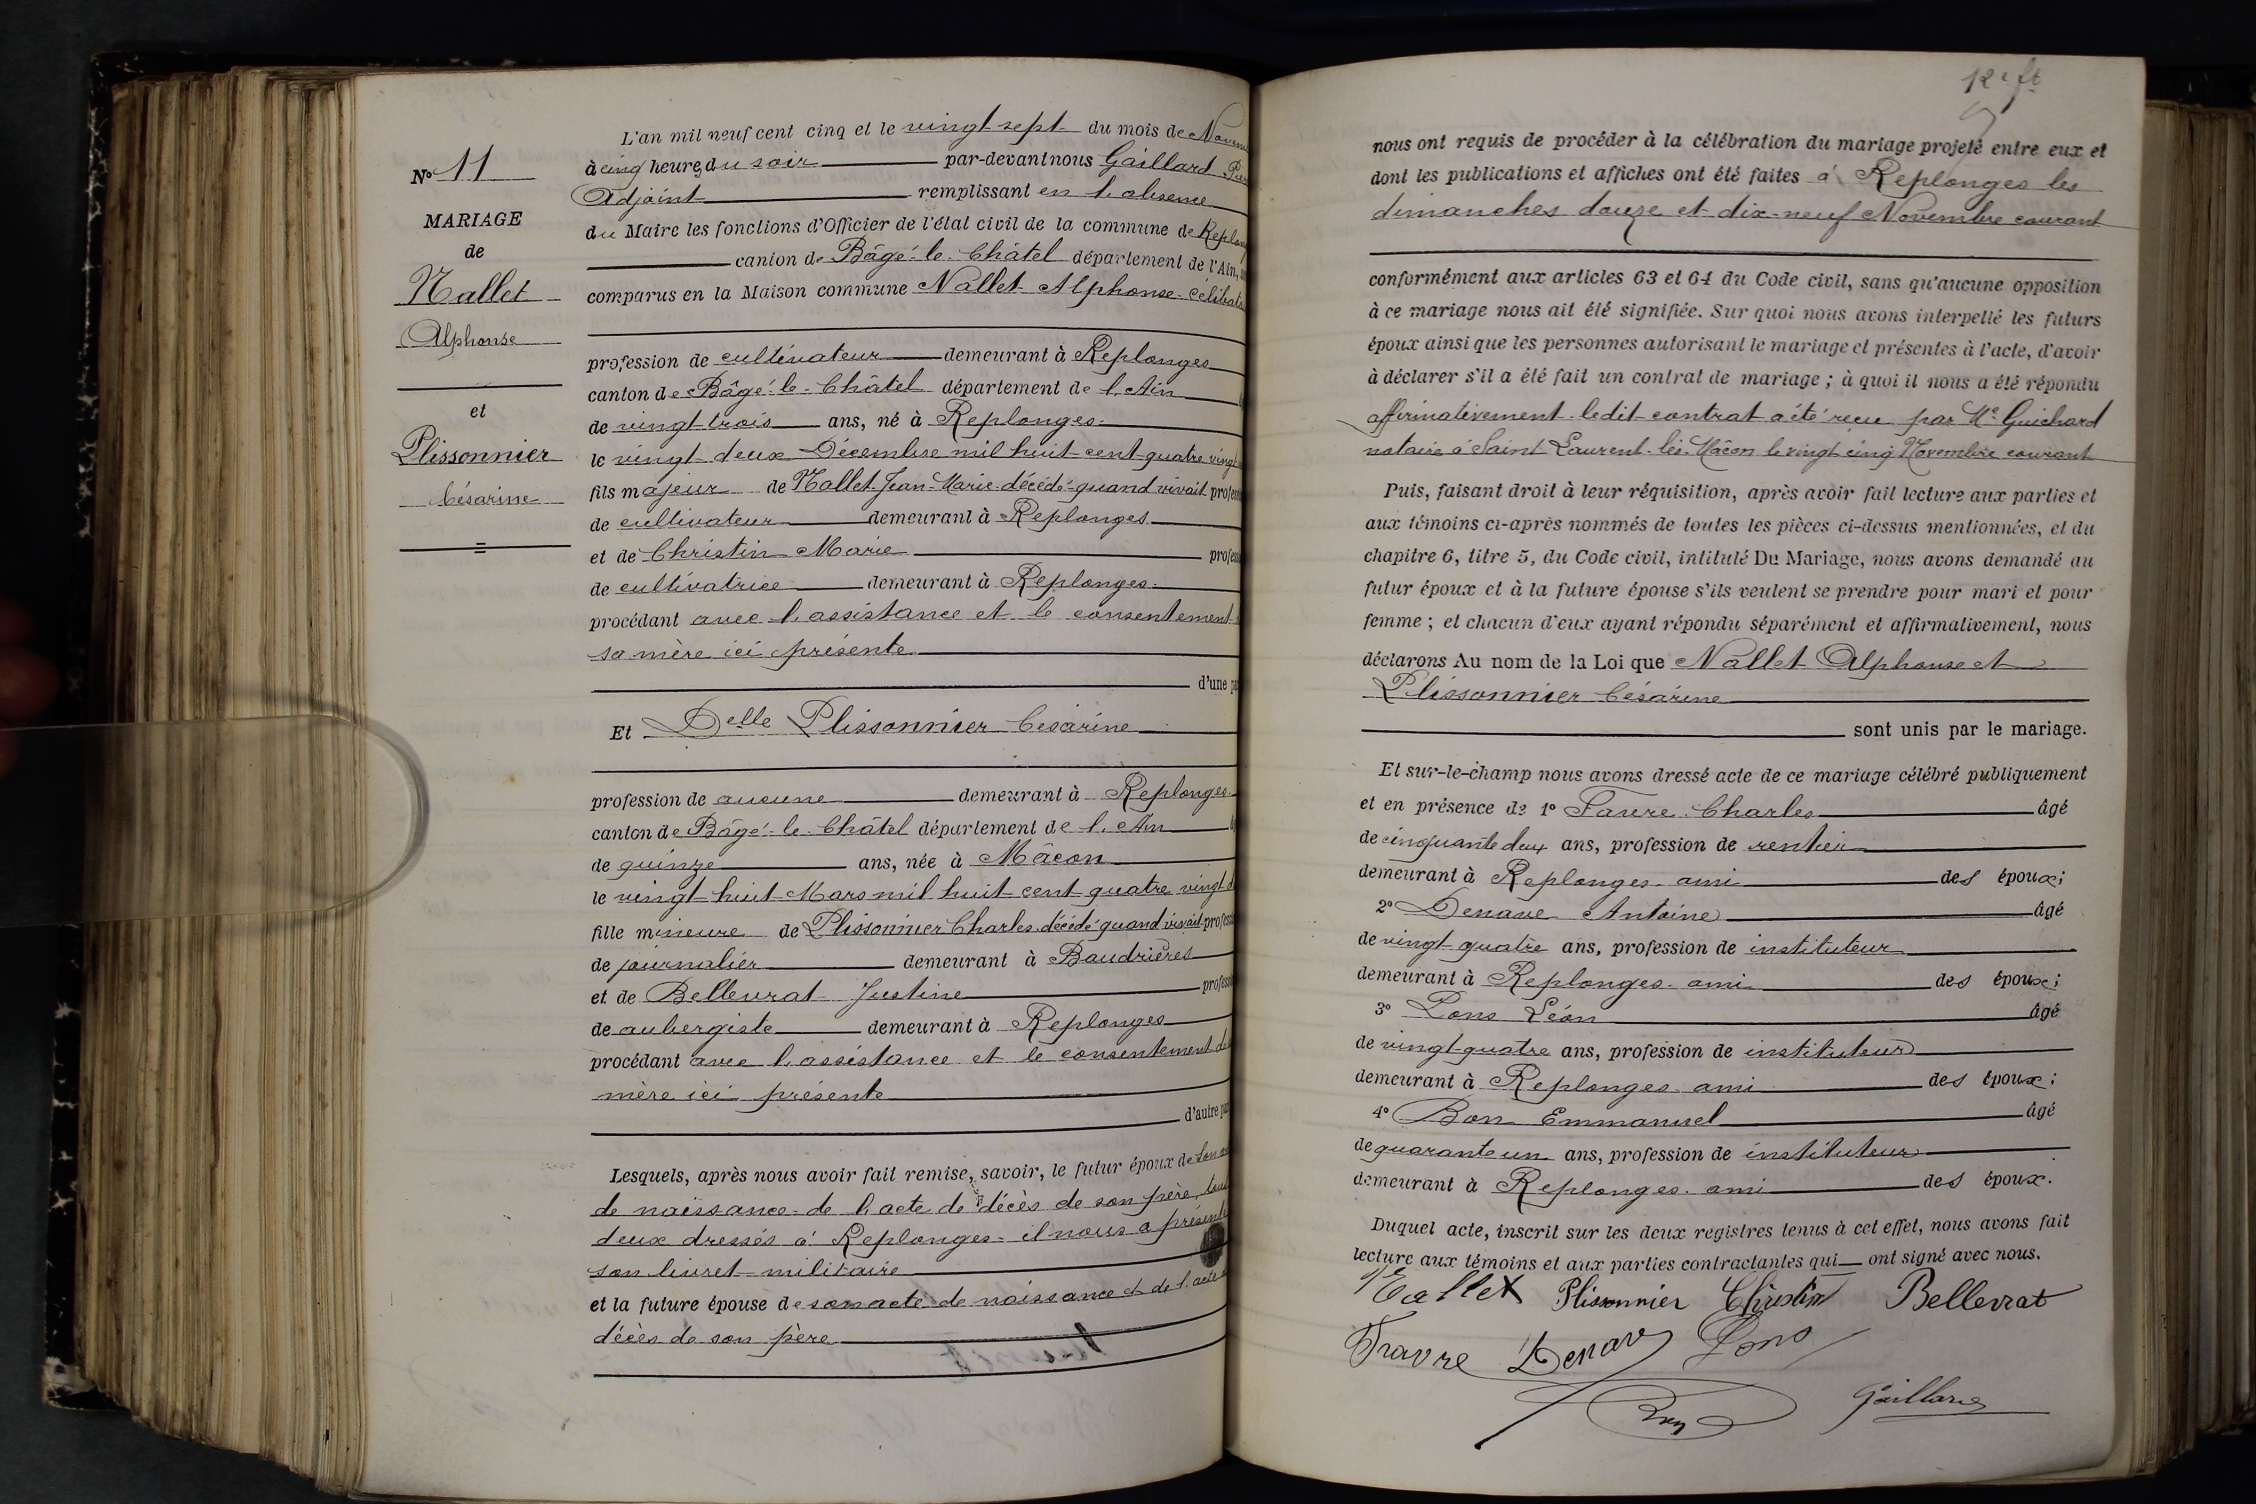 L'an mil neuf cent cinq et le vingt-sept du mois de
No 11
à cinq heures du soir par-devant nous Gaillard
Adjoint remplissant en l'absence
MARIAGE
du Maire les fonctions d'Officier de l'état civil de la commune de
de
canton de Bâgé-le-Châtel département de l'Ain,
Nallet
comparus en la Maison commune Nallet Alphonse
Alphonse
profession de cultivateur demeurant à Replonges
canton de Bâgé-le-Châtel département de l'Ain
et
de vingt-trois ans, né à Replonges
Plissonnier
le vingt-deux Décembre mil huit cent quatre vingt
Césarine
fils majeur de Nallet Jean-Marie décédé quand vivait
de cultivateur demeurant à Replonges
et de Christin Marie
de cultivatrice demeurant à Replonges
procédant avec l'assistance et le consentement
sa mère ici présente
d'une
Et Delle Plissonnier Césarine
profession de aucune demeurant à Replonges
canton de Bâgé-le-Châtel département de l'Ain
de quinze ans, née à Mâcon
le vingt-huit Mars mil huit cent quatre vingt
fille mineure de Plissonnier Charles décédé quand vivait
de journalier demeurant à Baudrières
et de Bellevrat Justine
de aubergiste demeurant à Replonges
procédant avec l'assistance et le consentement de
mère ici présente
d'autre
Lesquels, après nous avoir fait remise, savoir, le futur époux de son
de naissance de l'acte de décès de son père,
deux dressés à Replonges - il nous a présenté
son livret militaire
et la future épouse de son acte de naissance et de l'acte
décès de son père
nous ont requis de procéder à la célébration du mariage projeté entre eux et
dont les publications et affiches ont été faites à Replonges les
dimanches douze et dix-neuf Novembre courant
conformément aux articles 63 et 64 du Code civil, sans qu'aucune opposition
à ce mariage nous ait été signifiée. Sur quoi nous avons interpellé les futurs
époux ainsi que les personnes autorisant le mariage et présentes à l'acte, d'avoir
à déclarer s'il a été fait un contrat de mariage ; à quoi il nous a été répondu
affirmativement ledit contrat a été reçu par Me Guichard
notaire à Saint Laurent-lès-Mâcon le vingt cinq Novembre courant
Puis, faisant droit à leur réquisition, après avoir fait lecture aux parties et
aux témoins ci-après nommés de toutes les pièces ci-dessus mentionnées, et du
chapitre 6, titre 5, du Code civil, intitulé Du Mariage, nous avons demandé au
futur époux et à la future épouse s'ils veulent se prendre pour mari et pour
femme ; et chacun d'eux ayant répondu séparément et affirmativement, nous
déclarons Au nom de la Loi que Nallet Alphonse et
Plissonnier Césarine
sont unis par le mariage.
Et sur-le-champ nous avons dressé acte de ce mariage célébré publiquement
et en présence de 1o Favre Charles âgé
de cinquante deux ans, profession de rentier
demeurant à Replonges ami des époux;
2o Denave Antoine âgé
de vingt-quatre ans, profession de instituteur
demeurant à Replonges ami des époux;
3o Pons Léon âgé
de vingt-quatre ans, profession de instituteur
demeurant à Replonges ami des époux;
4o Bon Emmanuel âgé
de quarante un ans, profession de instituteur
demeurant à Replonges ami des époux.
Duquel acte, inscrit sur les deux registres tenus à cet effet, nous avons fait
lecture aux témoins et aux parties contractantes qui ont signé avec nous.
Nallet Plissonnier Christin Bellevrat
Favre Denave Pons
Bon Gaillard